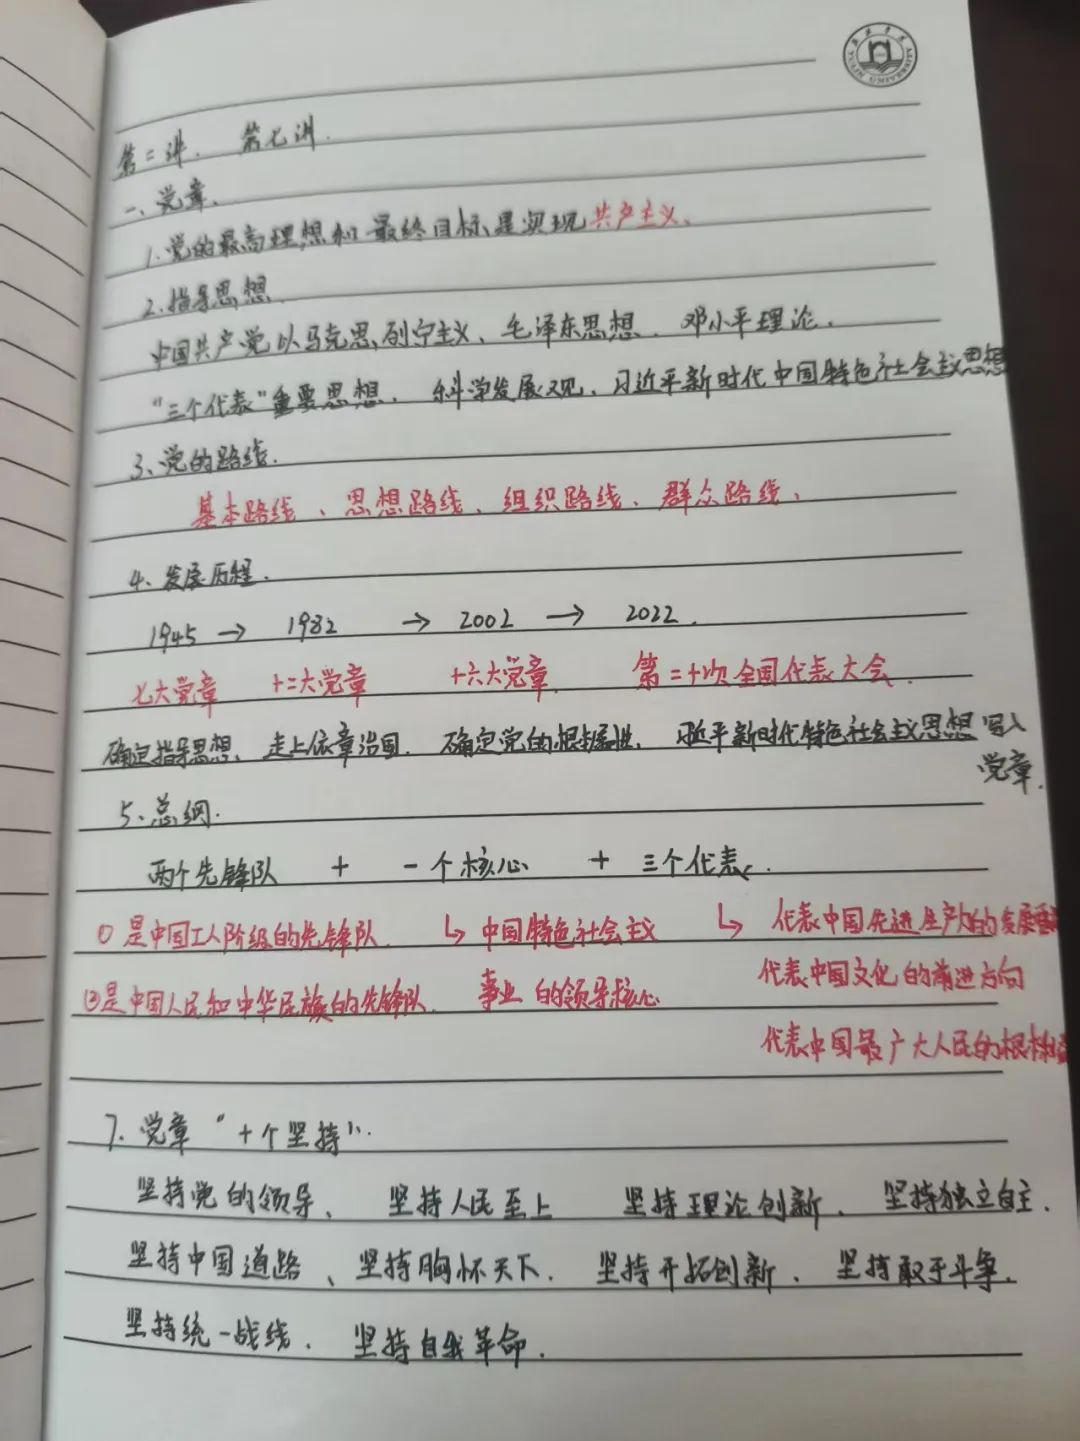 YULIN UNIVERSITY
第二讲. 第七讲.
一、党章.
1.党的最高理想和最终目标是实现共产主义、
2.指导思想
中国共产党以马克思列宁主义、毛泽东思想、邓小平理论、
"三个代表"重要思想、科学发展观、习近平新时代中国特色社会主义思想
3、党的路线.
基本路线、思想路线、组织路线、群众路线、
4、发展历程.
1945 → 1982 → 2002 → 2022.
七大党章 十二大党章 十六大党章. 第二十次全国代表大会.
确定指导思想、走上依章治国、确定党的根本属性、习近平新时代特色社会主义思想写入
党章.
5、总纲.
两个先锋队 + 一个核心 + 三个代表.
① 是中国工人阶级的先锋队. ↳ 中国特色社会主义 ↳ 代表中国先进生产力的发展要
②是中国人民和中华民族的先锋队. 事业的领导核心 代表中国文化的前进方向
代表中国最广大人民的根本
7. 党章"十个坚持".
坚持党的领导、 坚持人民至上 坚持理论创新、 坚持独立自主.
坚持中国道路、坚持胸怀天下. 坚持开拓创新、坚持敢于斗争.
坚持统一战线. 坚持自我革命.